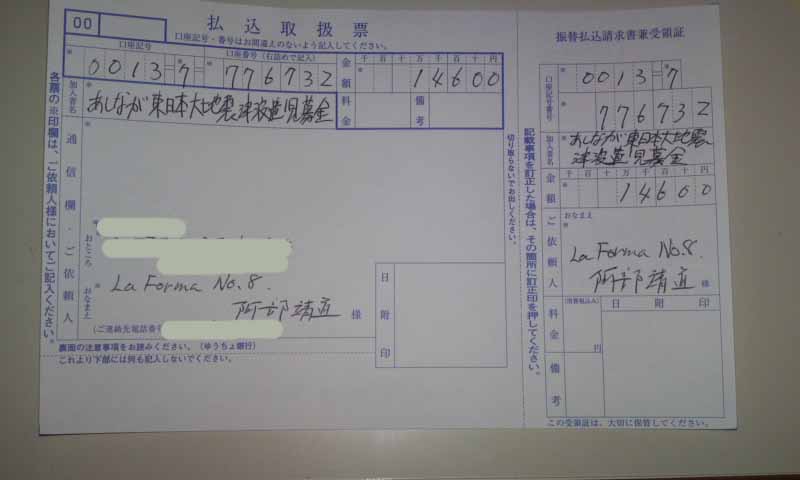 00
払込取扱票
口座記号・番号はお間違えのないよう記入してください。
口座記号
口座番号(右詰めで記入)
0013 7
776732
金額
千百十万千百十円
14600
加入者名
あしなが東日本大地震津波遺児募金
料金
備考
各票の※印欄は、ご依頼人様においてご記入ください。
通信欄・ご依頼人
おところ
おなまえ
La Forma No.8.
阿部靖
様
(ご連絡先電話番号
日附印
裏面の注意事項をお読みください。(ゆうちょ銀行)
これより下部には何も記入しないでください。
切り取らないでお出しください。
記載事項を訂正した場合は、その箇所に訂正印を押してください。
振替払込請求書兼受領証
口座記号番号
0013 7
776732
加入者名
あしなが東日本大地震
津波遺児募金
金額
千百十万千百十円
14600
ご依頼人
おなまえ
La Forma No.8.
阿部靖
様
料金
(消費税込み)
円
日附印
備考
この受領証は、大切に保管してください。